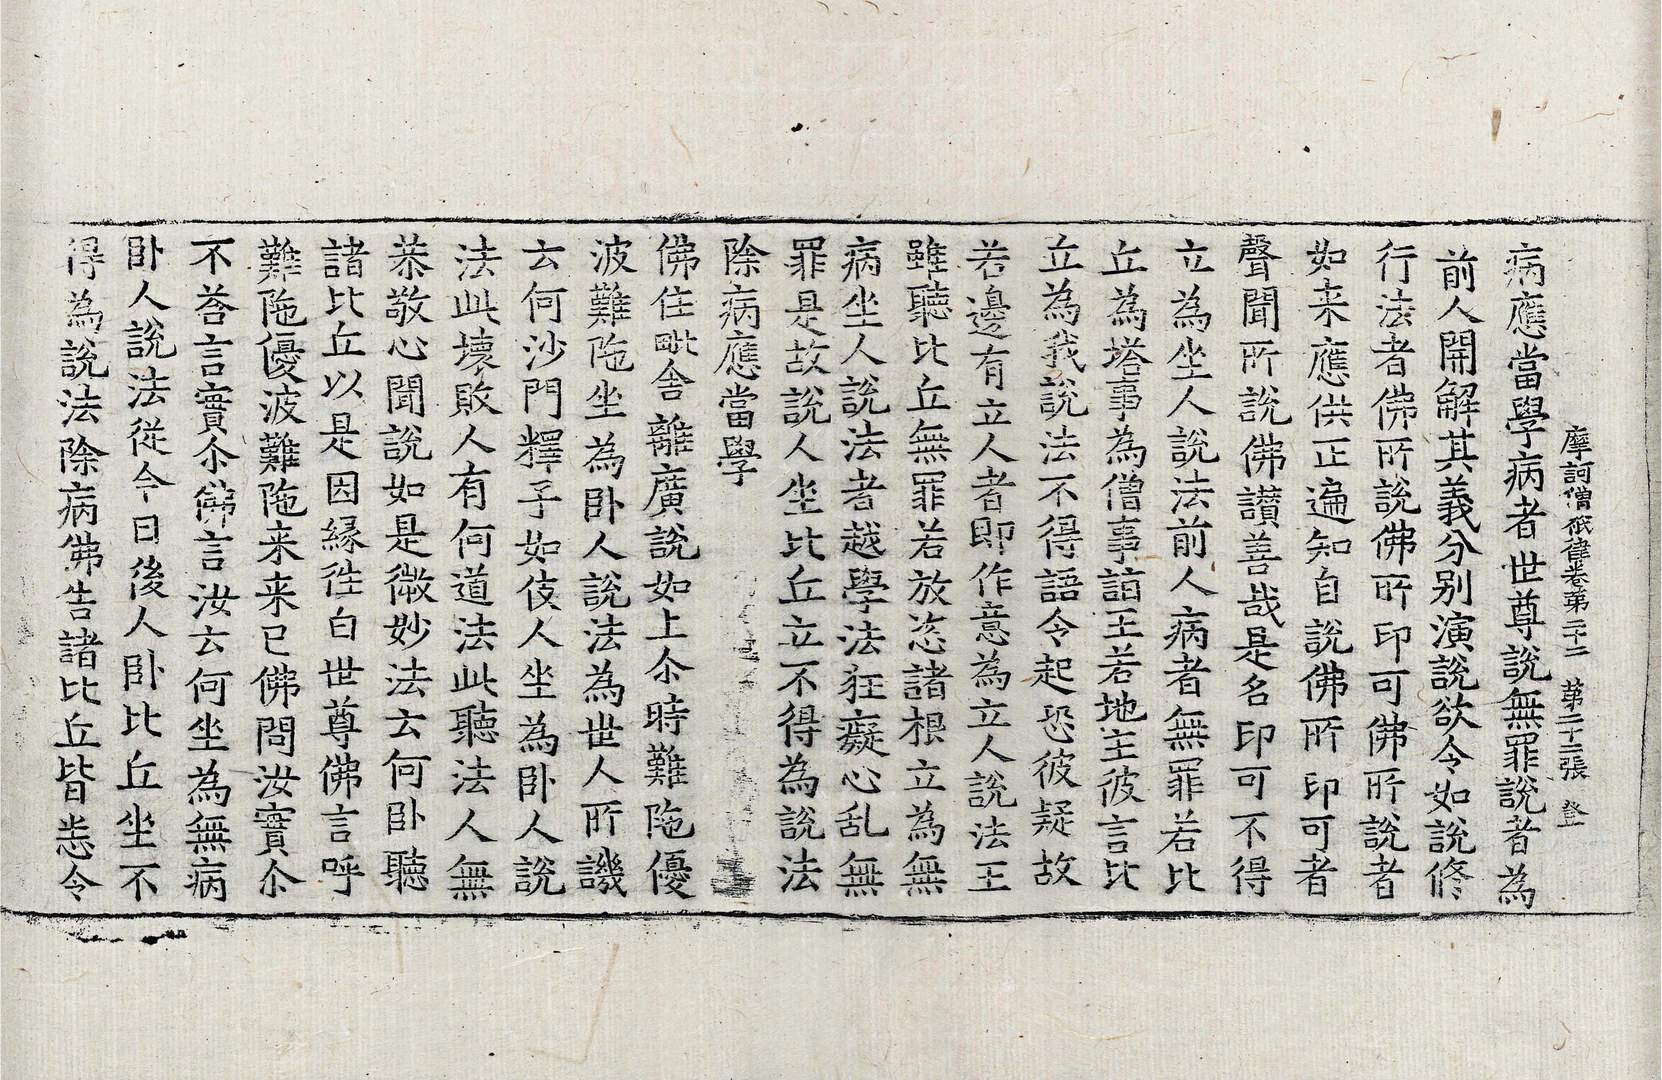 摩訶僧祇律卷第二十二 第二十二張 登
病應當學病者世尊說無罪說者為
前人開解其義分別演說欲令如說修
行法者佛所說佛所印可佛所說者
如来應供正遍知自說佛所印可者
聲聞所說佛讃善哉是名印可不得
立為坐人說法前人病者無罪若比
丘為塔事為僧事詣王若地主彼言比
丘為我說法不得語令起恐彼疑故
若邊有立人者即作意為立人說法王
雖聽比丘無罪若放恣諸根立為無
病坐人說法者越學法狂癡心乱無
罪是故說人坐比丘立不得為說法
除病應當學
佛住毗舍離廣說如上尒時難陁優
波難陁坐為卧人說法為世人所譏
云何沙門釋子如伎人坐為卧人說
法此壞敗人有何道法此聽法人無
恭敬心聞說如是微妙法云何卧聽
諸比丘以是因緣徃白世尊佛言呼
難陁優波難陁来来已佛問汝實尒
不荅言實尒佛言汝云何坐為無病
卧人說法從今日後人卧比丘坐不
得為說法除病佛告諸比丘皆悉令